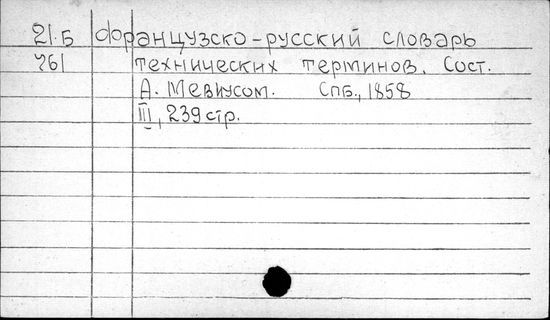 21.Б Французско-русский словарь
761 технических терминов. Сост.
А. Мевиусом. Спб., 1858
III, 239 стр.